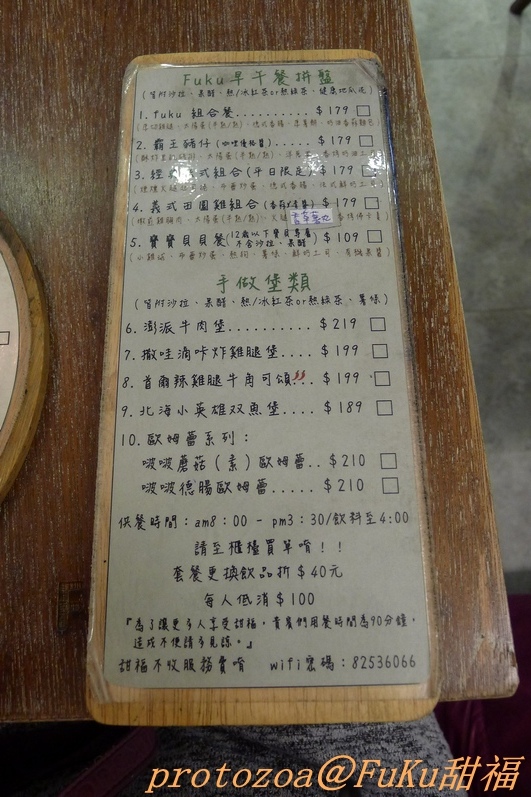 Fuku早午餐拼盤
(皆附沙拉、果醋、熱/冰紅茶or熱綠茶、健康地瓜泥)
1. fuku 組合餐.......... $179
2. 霸王豬仔(咖哩優格醬)..... $179
3. 經典美式組合(平日限定) $179
4. 義式田園雞組合 $179
香草薯泥
5. 寶寶貝貝餐(12歲以下寶貝專屬 不含沙拉、果醋) $109
手做堡類
(皆附沙拉、果醋、熱/冰紅茶or熱綠茶、薯條)
6. 澎派牛肉堡.......... $219
7. 撒哇滴咔炸雞腿堡.... $199
8. 首爾辣雞腿牛角可頌... $199
9. 北海小英雄双魚堡.... $189
10. 歐姆蕾系列：
啵啵蘑菇(素)歐姆蕾.. $210
啵啵德腸歐姆蕾..... $210
供餐時間：am8：00 - pm3：30/飲料至4:00
請至櫃檯買單唷！！
套餐更換飲品折＄40元
每人低消＄100
『為了讓更多人享受甜福，貴賓們用餐時間為90分鐘，
造成不便請多見諒。』
甜福不收服務費唷 wifi密碼：82536066
protozoa@FuKu甜福